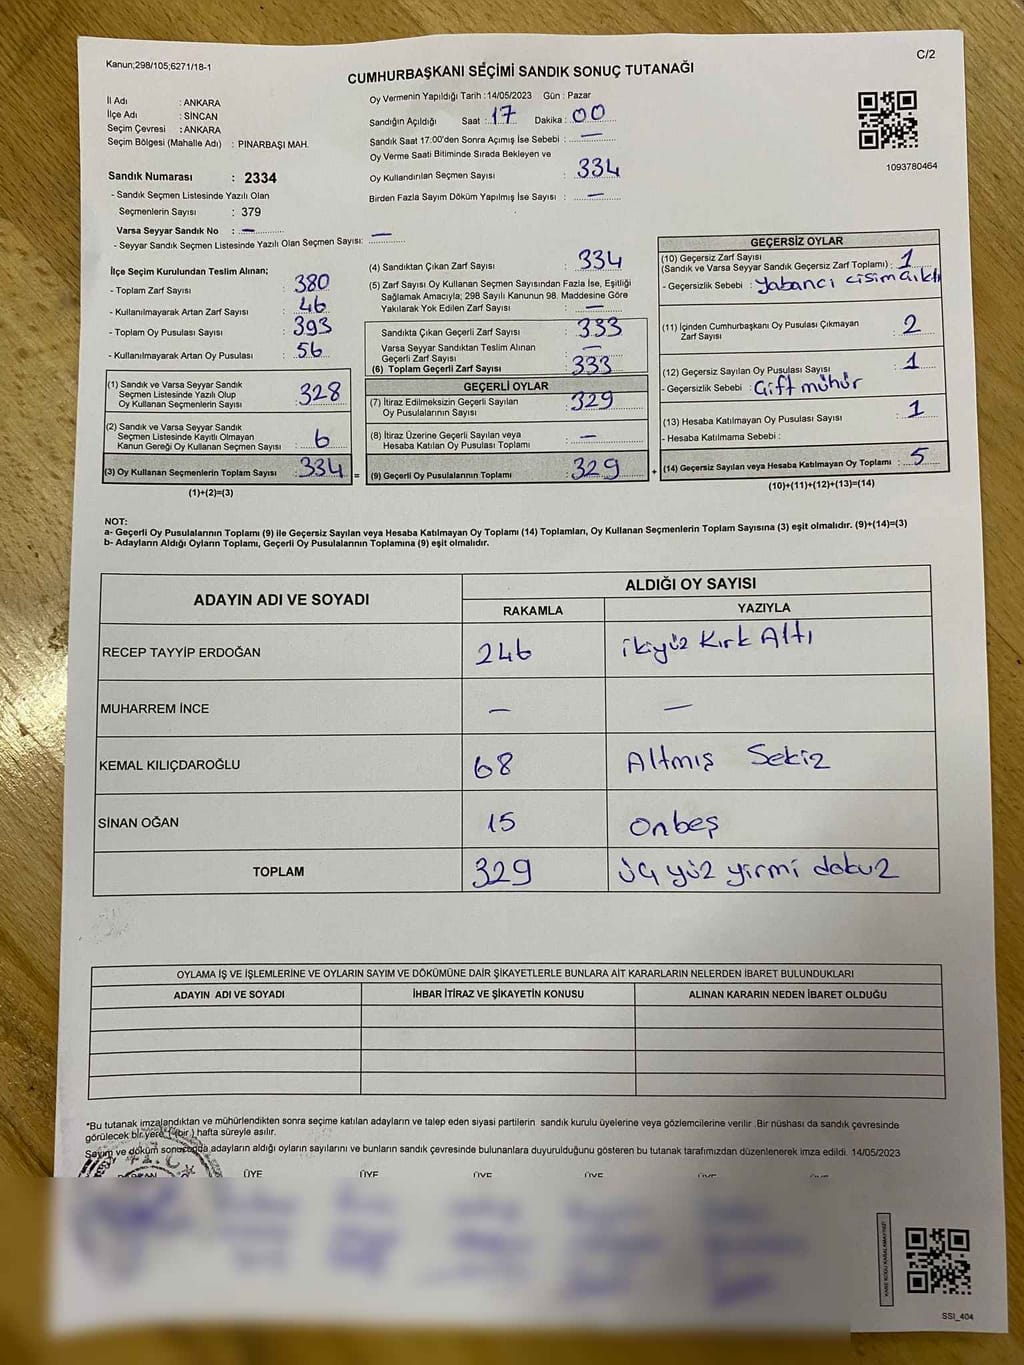 Kanun;298/105;6271/18-1
C/2
CUMHURBAŞKANI SEÇİMİ SANDIK SONUÇ TUTANAĞI
İl Adı : ANKARA
İlçe Adı : SİNCAN
Seçim Çevresi : ANKARA
Seçim Bölgesi (Mahalle Adı) : PINARBAŞI MAH.
Sandık Numarası : 2334
- Sandık Seçmen Listesinde Yazılı Olan
Seçmenlerin Sayısı : 379
Varsa Seyyar Sandık No : —
- Seyyar Sandık Seçmen Listesinde Yazılı Olan Seçmen Sayısı: —
Oy Vermenin Yapıldığı Tarih :14/05/2023 Gün : Pazar
Sandığın Açıldığı Saat : 17 Dakika : 00
Sandık Saat 17:00'den Sonra Açımış İse Sebebi : —
Oy Verme Saati Bitiminde Sırada Bekleyen ve
Oy Kullandırılan Seçmen Sayısı : 334
Birden Fazla Sayım Döküm Yapılmış İse Sayısı : —
1093780464
İlçe Seçim Kurulundan Teslim Alınan;
- Toplam Zarf Sayısı : 380
- Kullanılmayarak Artan Zarf Sayısı : 46
- Toplam Oy Pusulası Sayısı : 393
- Kullanılmayarak Artan Oy Pusulası : 56
(1) Sandık ve Varsa Seyyar Sandık
Seçmen Listesinde Yazılı Olup
Oy Kullanan Seçmenlerin Sayısı : 328
(2) Sandık ve Varsa Seyyar Sandık
Seçmen Listesinde Kayıtlı Olmayan
Kanun Gereği Oy Kullanan Seçmen Sayısı : 6
(3) Oy Kullanan Seçmenlerin Toplam Sayısı : 334 =
(1)+(2)=(3)
(4) Sandıktan Çıkan Zarf Sayısı : 334
(5) Zarf Sayısı Oy Kullanan Seçmen Sayısından Fazla İse, Eşitliği
Sağlamak Amacıyla; 298 Sayılı Kanunun 98. Maddesine Göre
Yakılarak Yok Edilen Zarf Sayısı : —
Sandıkta Çıkan Geçerli Zarf Sayısı : 333
Varsa Seyyar Sandıktan Teslim Alınan
Geçerli Zarf Sayısı : —
(6) Toplam Geçerli Zarf Sayısı : 333
GEÇERLİ OYLAR
(7) İtiraz Edilmeksizin Geçerli Sayılan
Oy Pusulalarının Sayısı : 329
(8) İtiraz Üzerine Geçerli Sayılan veya
Hesaba Katılan Oy Pusulası Toplamı : —
(9) Geçerli Oy Pusulalarının Toplamı : 329 +
GEÇERSİZ OYLAR
(10) Geçersiz Zarf Sayısı
(Sandık ve Varsa Seyyar Sandık Geçersiz Zarf Toplamı) : 1
- Geçersizlik Sebebi : Yabancı cisim çıktı
(11) İçinden Cumhurbaşkanı Oy Pusulası Çıkmayan
Zarf Sayısı : 2
(12) Geçersiz Sayılan Oy Pusulası Sayısı : 1
- Geçersizlik Sebebi : Çift mühür
(13) Hesaba Katılmayan Oy Pusulası Sayısı : 1
- Hesaba Katılmama Sebebi :
(14) Geçersiz Sayılan veya Hesaba Katılmayan Oy Toplamı : 5
(10)+(11)+(12)+(13)=(14)
NOT:
a- Geçerli Oy Pusulalarının Toplamı (9) ile Geçersiz Sayılan veya Hesaba Katılmayan Oy Toplamı (14) Toplamları, Oy Kullanan Seçmenlerin Toplam Sayısına (3) eşit olmalıdır. (9)+(14)=(3)
b- Adayların Aldığı Oyların Toplamı, Geçerli Oy Pusulalarının Toplamına (9) eşit olmalıdır.
ADAYIN ADI VE SOYADI
ALDIĞI OY SAYISI
RAKAMLA YAZIYLA
RECEP TAYYİP ERDOĞAN 246 ikiyüz Kırk Altı
MUHARREM İNCE — —
KEMAL KILIÇDAROĞLU 68 Altmış Sekiz
SİNAN OĞAN 15 onbeş
TOPLAM 329 üç yüz yirmi dokuz
OYLAMA İŞ VE İŞLEMLERİNE VE OYLARIN SAYIM VE DÖKÜMÜNE DAİR ŞİKAYETLERLE BUNLARA AİT KARARLARIN NELERDEN İBARET BULUNDUKLARI
ADAYIN ADI VE SOYADI İHBAR İTİRAZ VE ŞİKAYETİN KONUSU ALINAN KARARIN NEDEN İBARET OLDUĞU
*Bu tutanak imzalandıktan ve mühürlendikten sonra seçime katılan adayların ve talep eden siyasi partilerin sandık kurulu üyelerine veya gözlemcilerine verilir. Bir nüshası da sandık çevresinde
görülecek bir yere, (bir) hafta süreyle asılır.
Sayım ve döküm sonucunda adayların aldığı oyların sayılarını ve bunların sandık çevresinde bulunanlara duyurulduğunu gösteren bu tutanak tarafımızdan düzenlenerek imza edildi. 14/05/2023
T.C.
ÜYE ÜYE ÜYE ÜYE ÜYE ÜYE
SSI_404